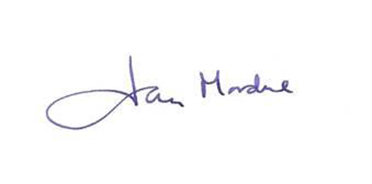 Ian Mordue